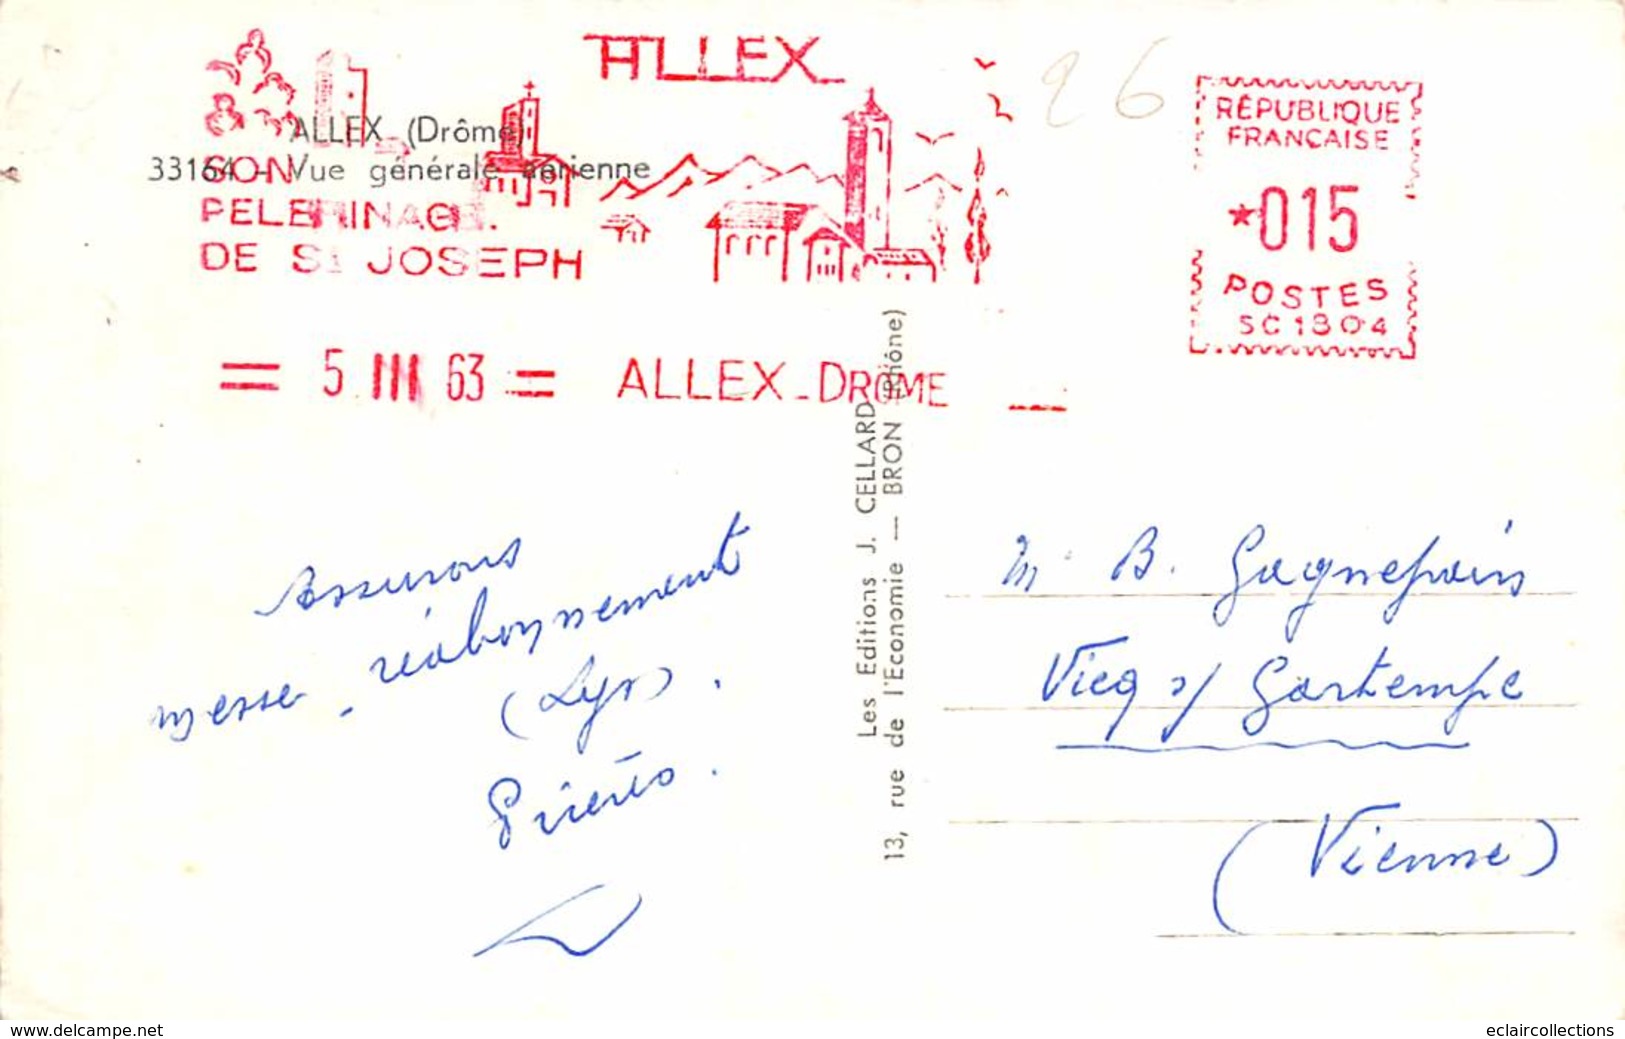 ALLEX
26
RÉPUBLIQUE
FRANÇAISE
*015
POSTES
SC 1304
ALLEX (Drôme)
33164 - Vue générale aérienne
SON
PELERINAGE
DE St JOSEPH
= 5 III 63 = ALLEX - DRÔME
Assurons
messe - réabonnement
(Lys).
Les Editions J. CELLARD
13, rue de l'Economie — BRON (Rhône)
Mr B. Gagnepain
Vicq s/ Gartempe
(Vienne)
www.delcampe.net
eclaircollections